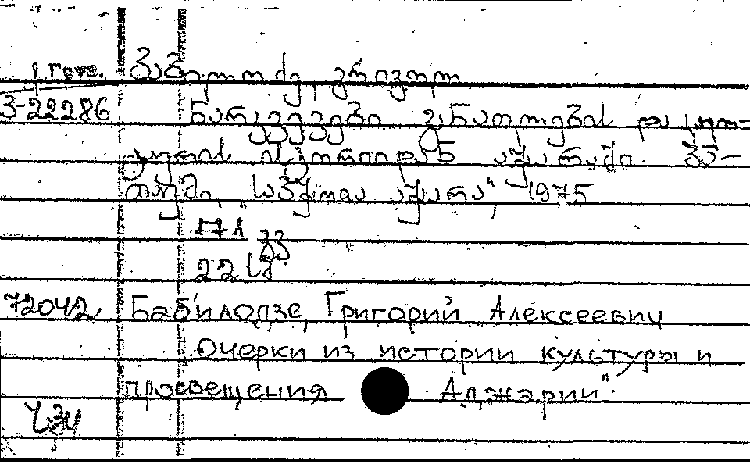 ბაბილოძე, გრიგოლ
3-22286 ნარკვევები განათლების და კულ-
ტურის ისტორიიდან აჭარაში. ბა-
თუმი, "საბჭოთა აჭარა", 1975
171 გვ
22 სმ
72042 Бабилодзе, Григорий Алексеевич
Очерки из истории культуры и
просвещения Аджарии".